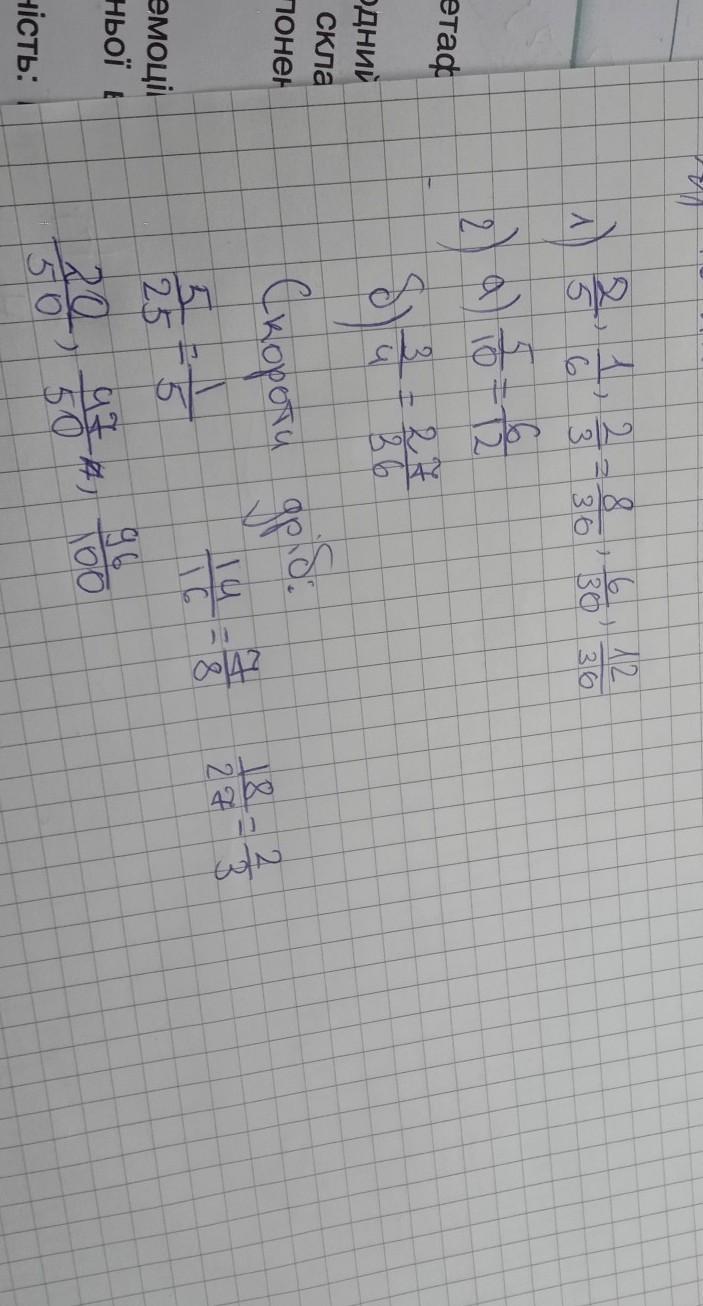 етаф
одний
скла
понен
емоці
ньої в
ність:
1) 2/5, 1/6, 2/3 = 8/36, 6/30, 12/36
2) а) 5/10 = 6/12
б) 3/4 = 27/36
Скороти дріб:
5/25 = 1/5 14/16 = 7/8 18/27 = 2/3
20/50, 47/50, 96/100